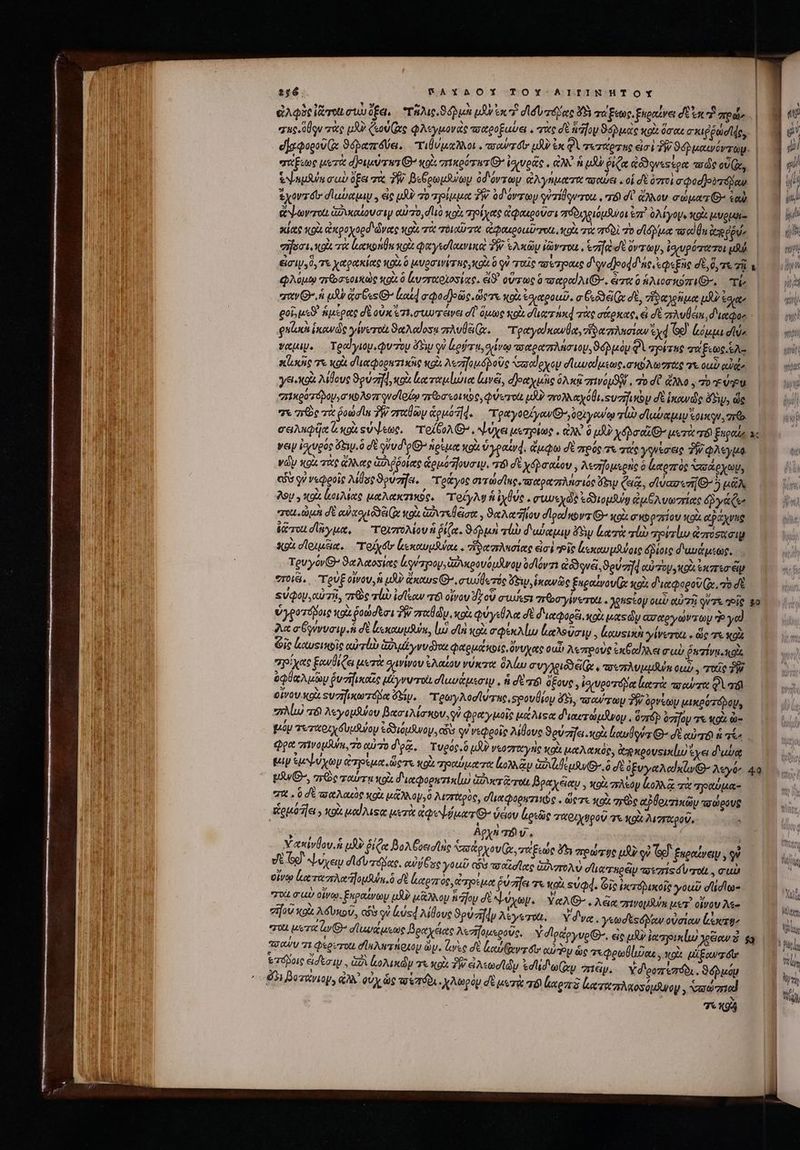 256 ΠΑΥΛΟΥ ΤΟΥ ΑΙΓΙΝΗΤΟΥ
ἀλφοὺς ἰᾶται σὺν ὄξει. Τῆλις, θερμὴ μὲν ἐκ τ δευτέρας ὅτι τάξεως. ξηραίνει δὲ ἐκ τ πρώ-
της. ὅθεν τὰς μὲν ζεούσας φλεγμονὰς παροξύνει. τὰς δὲ ἧττον θερμὰς καὶ ὅσαι σκιρρώδεις,
διαφοροῦσα θεραπεύει. Τιθύμαλλοι. πάντες μὲν ἐκ τ τετάρτης εἰσὶ τῶν θερμαινόντων
τάξεως μετὰ δριμύτητος καὶ πικρότητος ἰσχυρᾶς. ἀλλ' ἡ μὲν ῥίζα ἀσθενεστέρα πως οὖσα,
ἑψημένη σὺν ὄξει τὰ τῶν βεβρωμένων ὀδόντων ἀλγήματα παύει. οἱ δὲ ὀποὶ σφοδροτέραν
ἔχοντες δύναμιν, εἰς μὲν τὸ τρίμμα τῶν ὀδόντων ἐντίθενται. τοῦ δ' ἄλλου σώματος ἐὰν
ἅψωνται ἐπικαίουσιν αὐτὸ, διὸ καὶ τρίχας ἀφαιροῦσι περιχριόμενοι ἐπ' ὀλίγον. καὶ μυρμη-
κίας καὶ ἀκροχορδῶνας καὶ τὰ τοιαῦτα ἀφαιροῦνται. καὶ τὰ περὶ τὸ δέρμα πάθη ἀπορρύ-
πτουσι. καὶ τὰ κακοήθη καὶ φαγεδαινικὰ τῶν ἑλκῶν ἰῶνται. ἑπτὰ δὲ ὄντων, ἰσχυρότατοι μέν
εἰσιν, ὅ, τε χαρακίας καὶ ὁ μυρσινίτης, καὶ ὁ ἐν ταῖς πέτραις δενδρώδης. ἐφεξῆς δὲ, ὅ, τε τῇ
φλόμῳ προσεοικὼς καὶ ὁ κυπαρισσίας. εἶθ' οὕτως ὁ παράλιος. εἶτα ὁ ἡλιοσκόπιος. Τί-
τανος, ἡ μὲν ἄσβεστος καίει σφοδρῶς, ὥστε καὶ ἐσχαροῦν. σβεσθεῖσα δὲ, παραχρῆμα μὲν ἐσχα-
ροῖ, μεθ' ἡμέρας δὲ οὐκ ἔτι. συντείνει δ' ὅμως καὶ διατήκει τὰς σάρκας. εἰ δὲ πλυθείη, διαφο-
ρητικὴ ἱκανῶς γίνεται θαλάσσῃ πλυθεῖσα. Τραγάκανθα, παραπλησίαν ἔχει τῷ κόμμι δύ-
ναμιν. Τράγιον. φυτὸν ὅτιν ἐν Κρήτῃ, σχίνῳ παραπλήσιον, θερμὸν τ τρίτης τάξεως. ἑλ-
κτικῆς τε καὶ διαφορητικῆς καὶ λεπτομεροῦς ὑπάρχον δυνάμεως. σκόλοπας τε οὖν ἀνά-
γει. καὶ λίθους θρύπτει, καὶ καταμήνια κινεῖ, δραχμῆς ὁλκῇ πινόμενον. τὸ δὲ ἄλλο, τὸ εὔτυ
πικρότερον, σκολοπενδρίῳ προσεοικὸς, φύεται μὲν πολλαχόθι. συπτικὸν δὲ ἱκανῶς ὅτιν, ὥς
τε πρὸς τὰ ῥοώδη τῶν παθῶν ἁρμόττει. Τραγορίγανος, ὀριγάνῳ τὴν δύναμιν ἔοικεν, προ
σειληφῖα καὶ στύψεως. Τρίβολος. ψύχει μετρίως. ἀλλ' ὁ μὲν χερσαῖος μετὰ τοῦ ξηραί-
νειν ἰσχυρός ὅτιν. ὁ δὲ ἔνυδρος ἠρέμα καὶ ὑγραίνει. ἄμφω δὲ πρός τε τὰς γενέσεις τῶν φλεγμο-
νῶν καὶ τὰς ἄλλας ἐπιρροίας ἁρμόττουσιν. τοῦ δὲ χερσαίου, λεπτομερὴς ὁ καρπὸς ὑπάρχων,
τοὺς ἐν νεφροῖς λίθους θρύπτει. Τράγος σιτώδης, παραπλήσιός ὅτιν ζειᾷ, δυσπεπτὸς δὲ μᾶλ
λον, καὶ κοιλίας μαλακτικός. Τρίγλη ἡ ἰχθὺς. συνεχῶς ἐσθιομένη ἀμβλυωπίας ἐργάζε-
ται. ὠμὴ δὲ ἀνασχισθεῖσα καὶ ἐπιτεθεῖσα, θαλαττίου δράκοντος καὶ σκορπίου καὶ ἀράχνης
ἰᾶται δῆγμα. Τριπολίου ἡ ῥίζα. θερμὴ τὴν δύναμιν ὅτιν κατὰ τὴν τρίτην ἀπόστασιν
καὶ δριμεῖα. Τρίχες κεκαυμέναι. παραπλησίας εἰσὶ τοῖς κεκαυμένοις ἐρίοις δυνάμεως.
Τρυγόνος θαλασσίας κέντρον, ἐπικρουόμενον ὀδόντι ἀσθενεῖ, θρύπτει αὐτὸν, καὶ ἐκπεσεῖν
ποιεῖ. Τρὺξ οἴνου, ἡ μὲν ἄκαυστος, σύνθετός ὅτιν, ἱκανῶς ξηραίνουσα καὶ διαφοροῦσα. τὸ δὲ
στύφον, αὐτῇ, πρὸς τὴν ἰδίαν τοῦ οἴνου ἐξ οὗ συνέστη προσγίνεται. χρηστέον οὖν αὐτῇ ἔν τε τοῖς
ὑγροτέροις καὶ ῥοώδεσι τῶν παθῶν. καὶ φύγεθλα δὲ διαφορεῖ. καὶ μαστῶν σπαργώντων τὸ γά
λα σβέννυσιν. ἡ δὲ κεκαυμένη, ἣν δὴ καὶ σφέκλην καλοῦσιν, καυστικὴ γίνεται. ὥς τε καὶ
τοῖς καυστικοῖς αὐτὴν ἐπιμίγνυσθαι φαρμάκοις. ὄνυχας οὖν λεπροὺς ἐκβάλλει σὺν ῥητίνῃ. καὶ
τρίχας ξανθίζει μετὰ σχινίνου ἐλαίου νύκτα ὅλην συγχρισθεῖσα. πεπλυμένη οὖν, ταῖς τῶν
ὀφθαλμῶν ῥυπτικαῖς μίγνυται δυνάμεσιν. ἡ δὲ τοῦ ὄξους, ἰσχυροτέρα κατὰ πάντα τ τοῦ
οἴνου καὶ συπτικωτέρα ὅτιν. Τρωγλοδύτης, στρουθίον ὅτι, πάντων τῶν ὀρνέων μικρότερον,
πλὴν τοῦ λεγομένου βασιλίσκου, ἐν φραγμοῖς μάλιστα διαιτώμενον. ὅπερ ὀπτόν τε καὶ ὠ-
μὸν τεταριχευμένον ἐσθιόμενον, τοὺς ἐν νεφροῖς λίθους θρύπτει. καὶ καυθέντος δὲ αὐτοῦ ἡ τέ-
φρα πινομένη, τὸ αὐτὸ δρᾷ. Τυρὸς. ὁ μὲν νεοπαγὴς καὶ μαλακὸς, ἀποκρουστικὴν ἔχει δύνα
μιν ἐμψύχων ἀτρέμα. ὥστε καὶ τραύματα κολλᾷν ἐπιτιθέμενος. ὁ δὲ ὀξυγαλάκτινος λεγό-
μενος, πρὸς ταύτῃ καὶ διαφορητικὴν ἐπικτᾶται βραχεῖαν, καὶ πλέον κολλᾷ τὰ τραύμα-
τα. ὁ δὲ παλαιὸς καὶ μᾶλλον, ὁ λιπαρὸς, διαφορητικὸς. ὥστε καὶ πρὸς ἀρθριτικῶν πώρους
ἁρμόττει, καὶ μάλιστα μετὰ ἀφεψήματος ὑείου κρέως ταριχηροῦ τε καὶ λιπαροῦ.
Ἀρχὴ τοῦ υ.
Υακίνθου. ἡ μὲν ῥίζα βολβοειδὴς ὑπάρχουσα, τάξεώς ὅτι πρώτης μὲν ἐν τῷ ξηραίνειν, ἐν
δὲ τῷ ψύχειν δευτέρας. αὐτίκα γοῦν τοὺς παῖδας ἐπιπολὺ διατηρεῖν πεπίστευται, σὺν
οἴνῳ καταπλαττομένη. ὁ δὲ καρπὸς, ἀτρέμα ῥύπτει τε καὶ στύφει. τοῖς ἰκτερικοῖς γοῦν δίδο-
ται σὺν οἴνῳ. ξηραίνων μὲν μᾶλλον ἧττον δὲ ψύχων. Ὕαλος. λεία πινομένη μετ' οἴνου λε-
πτοῦ καὶ λευκοῦ, τοὺς ἐν κύστει λίθους θρύπτειν λέγεται. Ὕδνα. γεωδεστέραν οὐσίαν κέκτη-
ται μετά τινος δυνάμεως βραχείας λεπτομεροῦς. Ὑδράργυρος. εἰς μὲν ἰατρικὴν χρείαν οὐ
πάνυ τι φέρεται δηλητήριον ὤν. τινὲς δὲ καύσαντες αὐτὴν ὡς τεφρωθῆναι, καὶ μίξαντες
ἑτέροις εἴδεσιν, ἐπὶ κολικῶν τε καὶ τῶν εἰλεωδῶν ἔδωσαν πιεῖν. Ὑδροπέπερι. θερμὸν
ὅτι βοτάνιον, ἀλλ' οὐχ ὡς πέπερι. χλωρὸν δὲ μετὰ τοῦ καρποῦ καταπλασσόμενον, ὑπώπιά
τε καὶ